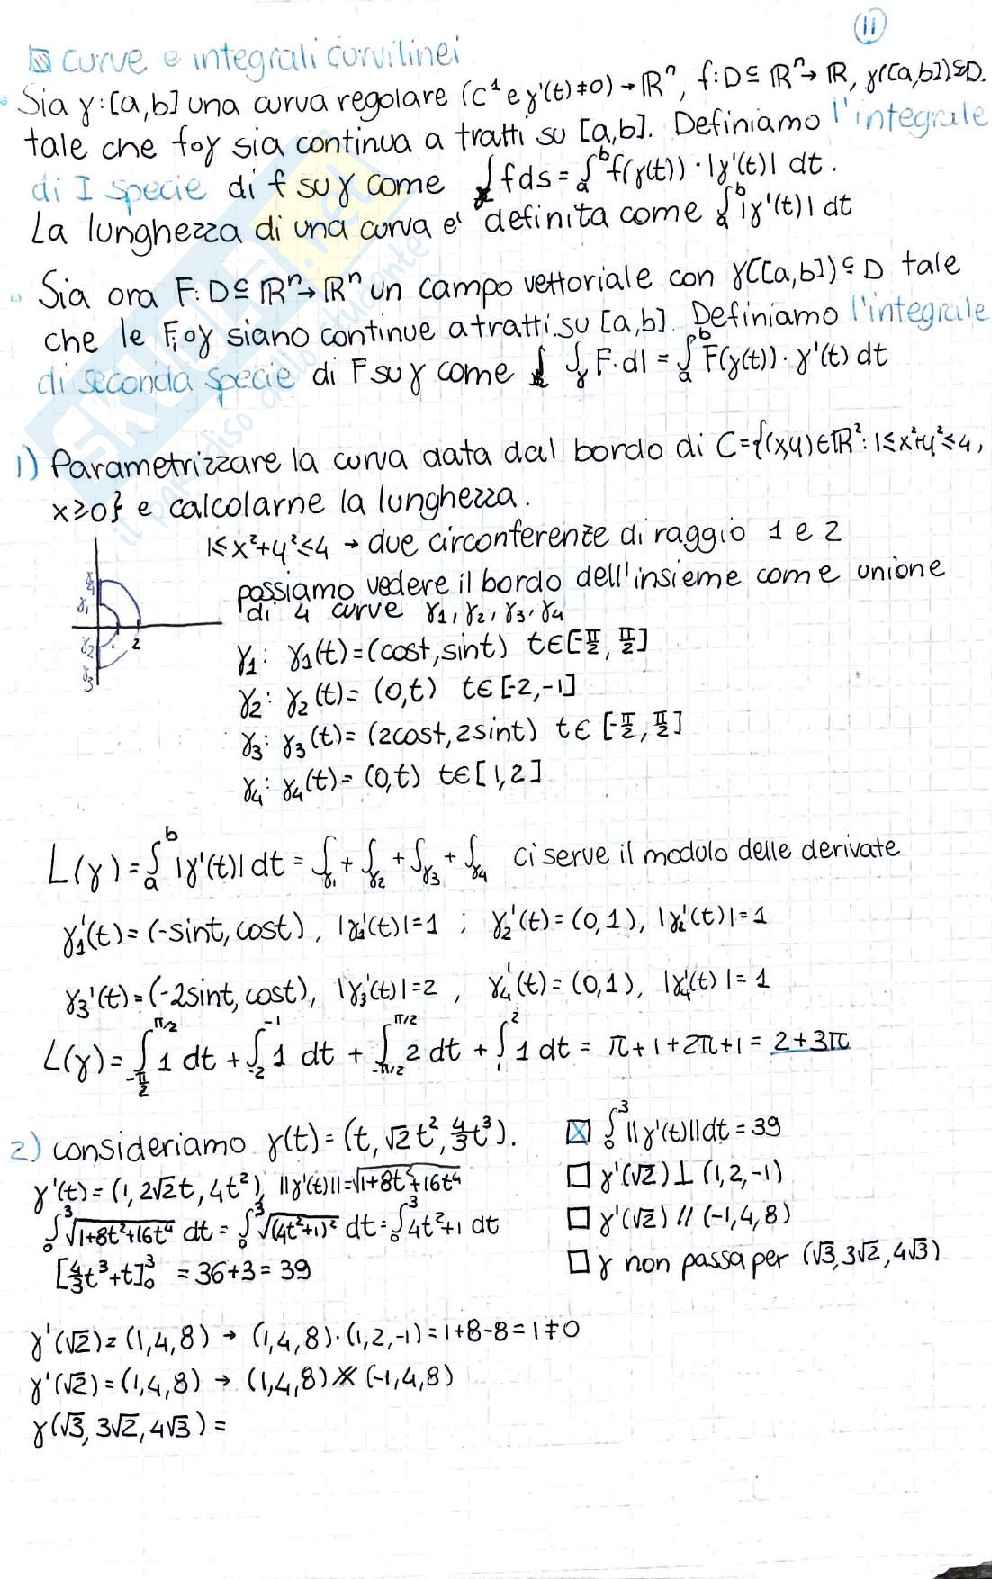 11
curve e integrali curvilinei
Sia γ:[a,b] una curva regolare (C¹ e γ'(t)≠0) → ℝⁿ, f:D⊆ℝⁿ→ℝ, γ([a,b])⊆D.
tale che f∘γ sia continua a tratti su [a,b]. Definiamo l'integrale
di I specie di f su γ come ∫_γ fds = ∫_a^b f(γ(t))·|γ'(t)| dt.
La lunghezza di una curva e' definita come ∫_a^b |γ'(t)| dt
Sia ora F:D⊆ℝⁿ→ℝⁿ un campo vettoriale con γ([a,b])⊆D tale
che le Fᵢ∘γ siano continue a tratti su [a,b]. Definiamo l'integrale
di seconda specie di F su γ come ∫_γ F·dl = ∫_a^b F(γ(t))·γ'(t) dt
1) Parametrizzare la curva data dal bordo di C={(x,y)∈ℝ²: 1≤x²+y²≤4,
x≥0} e calcolarne la lunghezza.
1≤x²+y²≤4 → due circonferenze di raggio 1 e 2
possiamo vedere il bordo dell'insieme come unione
di 4 curve γ₁, γ₂, γ₃, γ₄
γ₄
γ₁
γ₂
γ₃
2
γ₁: γ₁(t)=(cost, sint) t∈[-π/2, π/2]
γ₂: γ₂(t)=(0,t) t∈[-2,-1]
γ₃: γ₃(t)=(2cost, 2sint) t∈[-π/2, π/2]
γ₄: γ₄(t)=(0,t) t∈[1,2]
L(γ)=∫_a^b |γ'(t)| dt = ∫_γ₁ + ∫_γ₂ + ∫_γ₃ + ∫_γ₄ ci serve il modulo delle derivate
γ₁'(t)=(-sint, cost), |γ₁'(t)|=1 ; γ₂'(t)=(0,1), |γ₂'(t)|=1
γ₃'(t)=(-2sint, cost), |γ₃'(t)|=2 , γ₄'(t)=(0,1), |γ₄'(t)|=1
L(γ)=∫_{-π/2}^{π/2} 1 dt + ∫_{-2}^{-1} 1 dt + ∫_{-π/2}^{π/2} 2 dt + ∫_1^2 1 dt = π+1+2π+1 = 2+3π
2) consideriamo γ(t)=(t, √2t², 4/3t³). ☒ ∫_0^3 ||γ'(t)||dt=39
γ'(t)=(1, 2√2t, 4t²), ||γ'(t)||=√(1+8t²+16t⁴) ☐ γ'(√2)⊥(1,2,-1)
∫_0^3 √(1+8t²+16t⁴) dt = ∫_0^3 √((4t²+1)²) dt = ∫_0^3 4t²+1 dt ☐ γ'(√2) // (-1,4,8)
[4/3t³+t]_0^3 = 36+3=39 ☐ γ non passa per (√3, 3√2, 4√3)
γ'(√2)=(1,4,8) → (1,4,8)·(1,2,-1)=1+8-8=1≠0
γ'(√2)=(1,4,8) → (1,4,8) ∦ (-1,4,8)
γ(√3, 3√2, 4√3)=